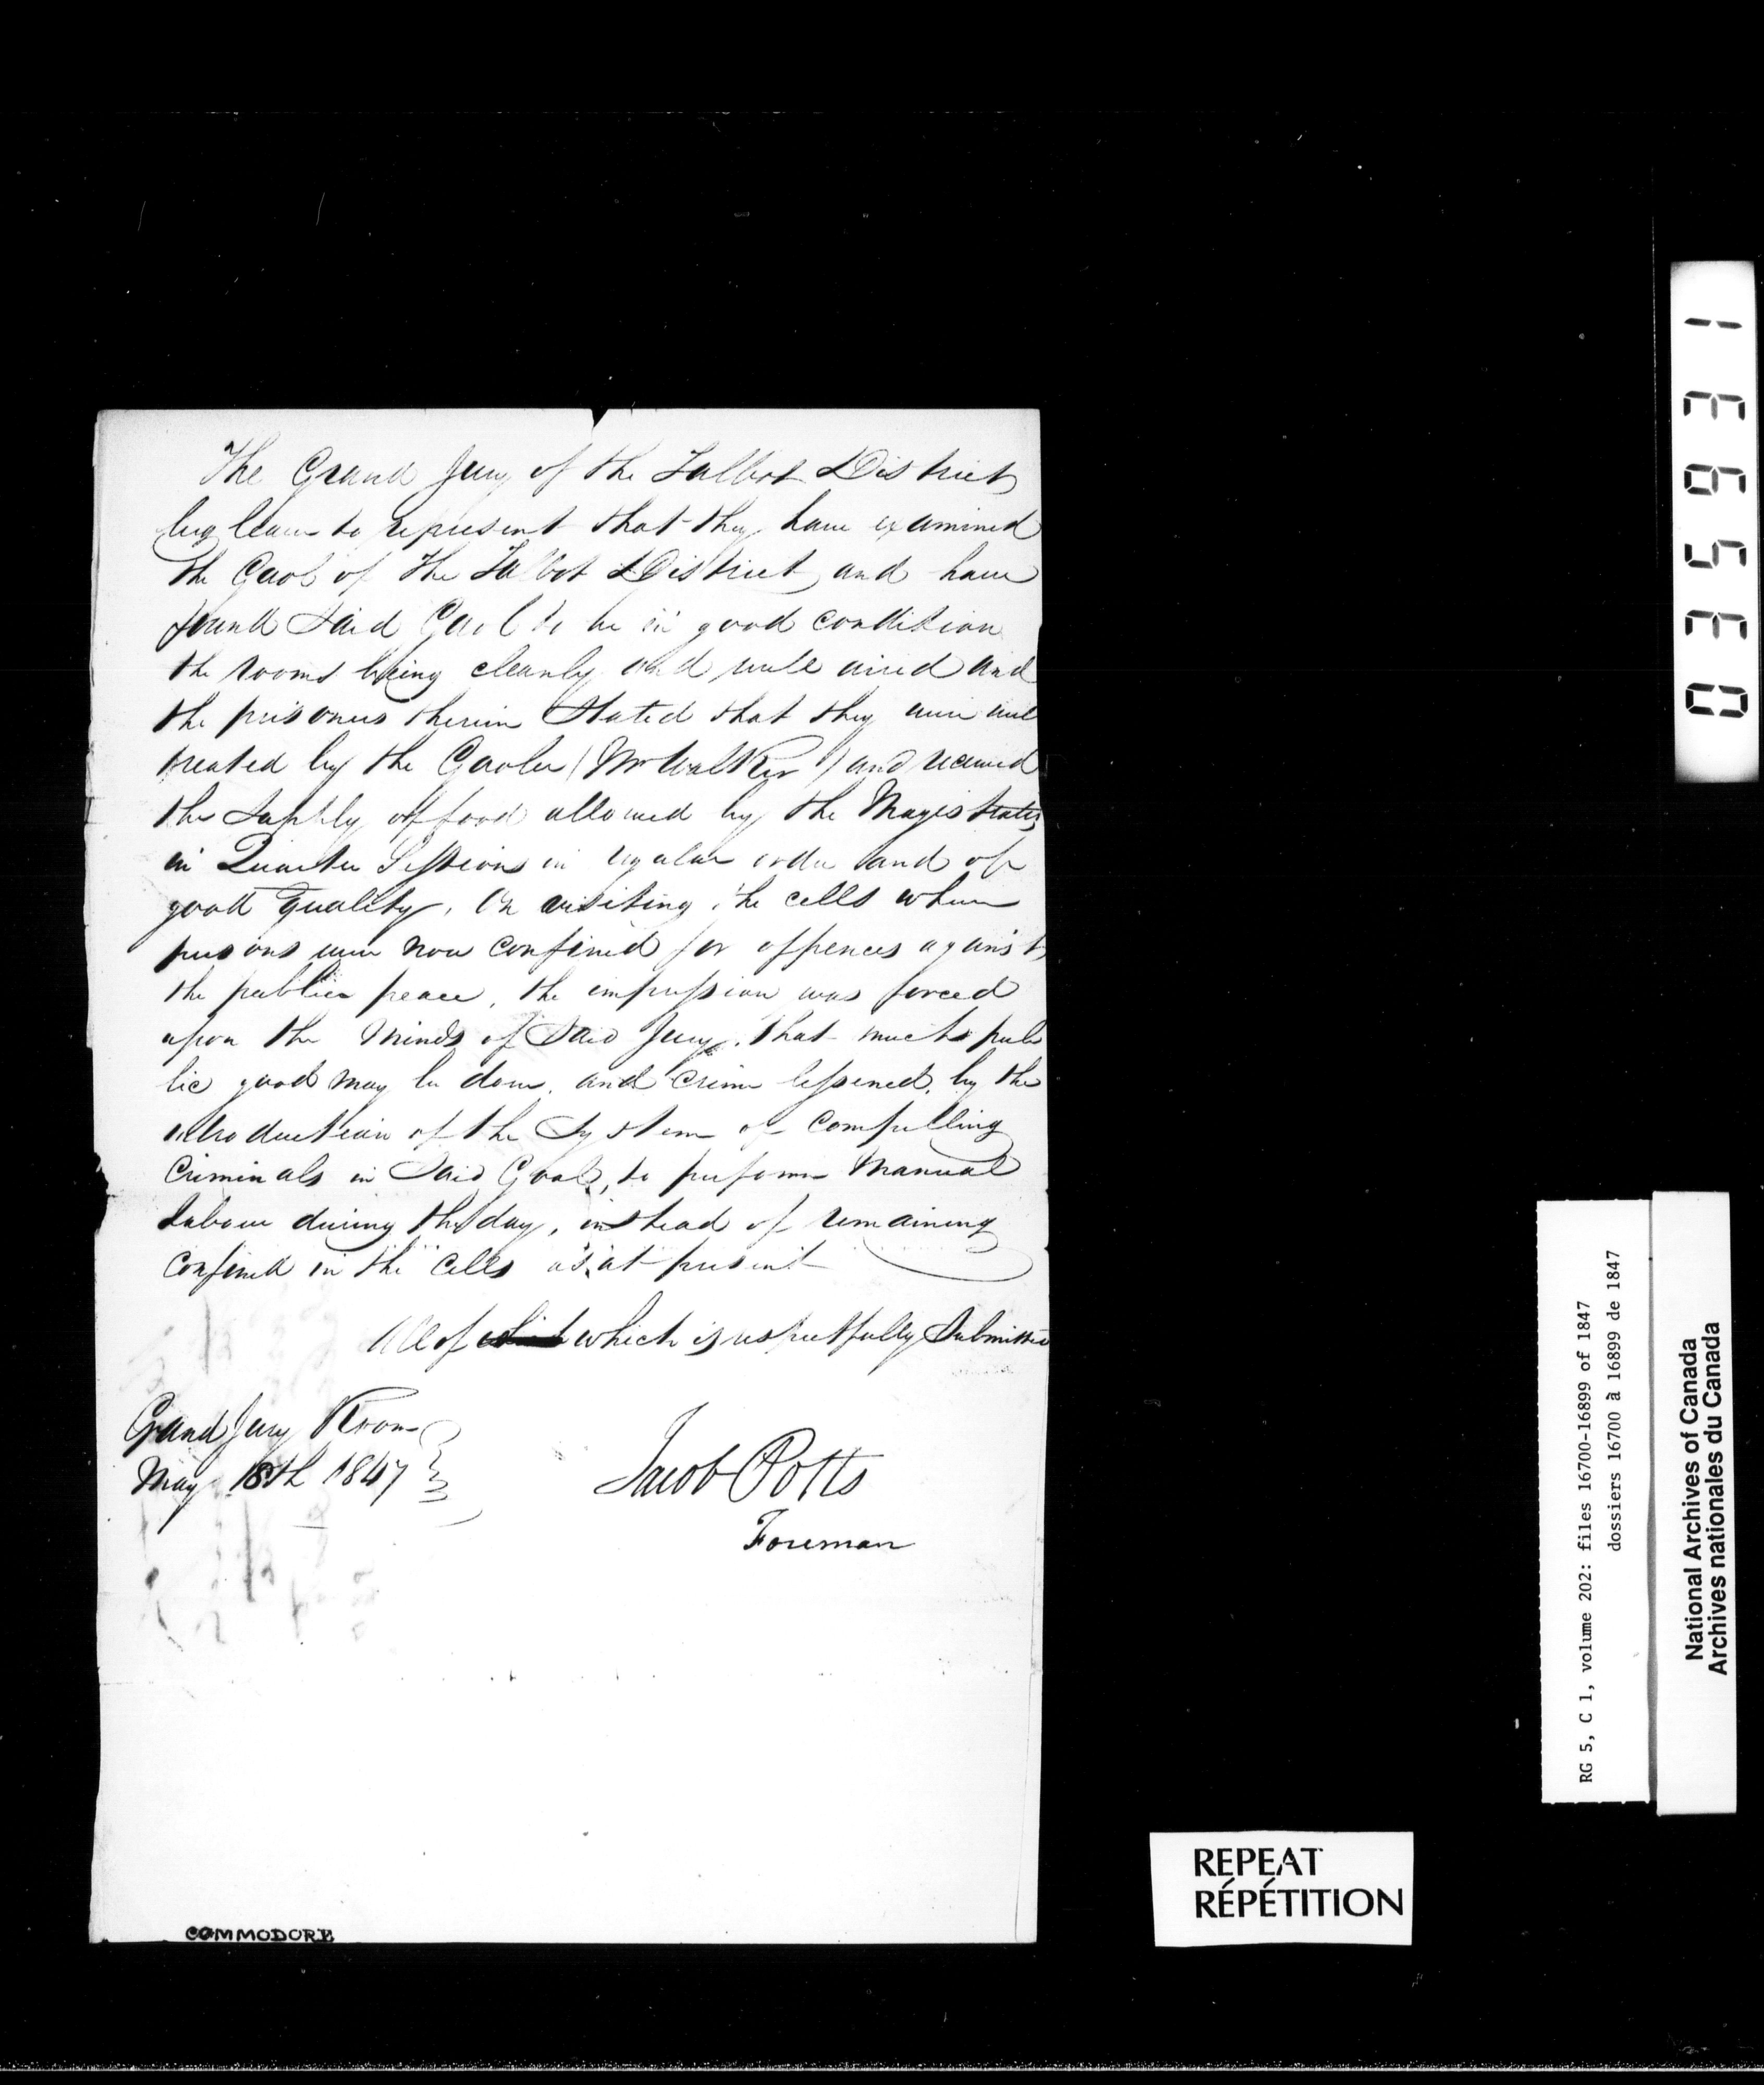 The Grand Jury of the Talbot District
beg leave to represent that they have examined
the Gaol of The Talbot District and have
found Said Gaol to be in good condition
the rooms being cleanly and well aired and
the prisoners therein Stated that they were well
treated by the Gaoler (Mr Walker) and received
the Supply of food allowed by the Magistrates
in Quarter Sessions in regular order and of
good Quality, On visiting the cells where
persons were now confined for offences against
the public peace, the impression was forced
upon the minds of Said Jury, that much pub
lic good may be done, and Crime lessened, by the
introduction of the System of compelling
Criminals in Said Goal, to perform Manual
Labour during the day, instead of remaining
confined in the Cells as at present
All of which is respectfully Submitted
Grand Jury Room
May 18th 1847
Jacob Potts
Foreman
COMMODORE
REPEAT
RÉPÉTITION
RG 5, C 1, volume 202: files 16700-16899 of 1847
dossiers 16700 à 16899 de 1847
National Archives of Canada
Archives nationales du Canada
035631